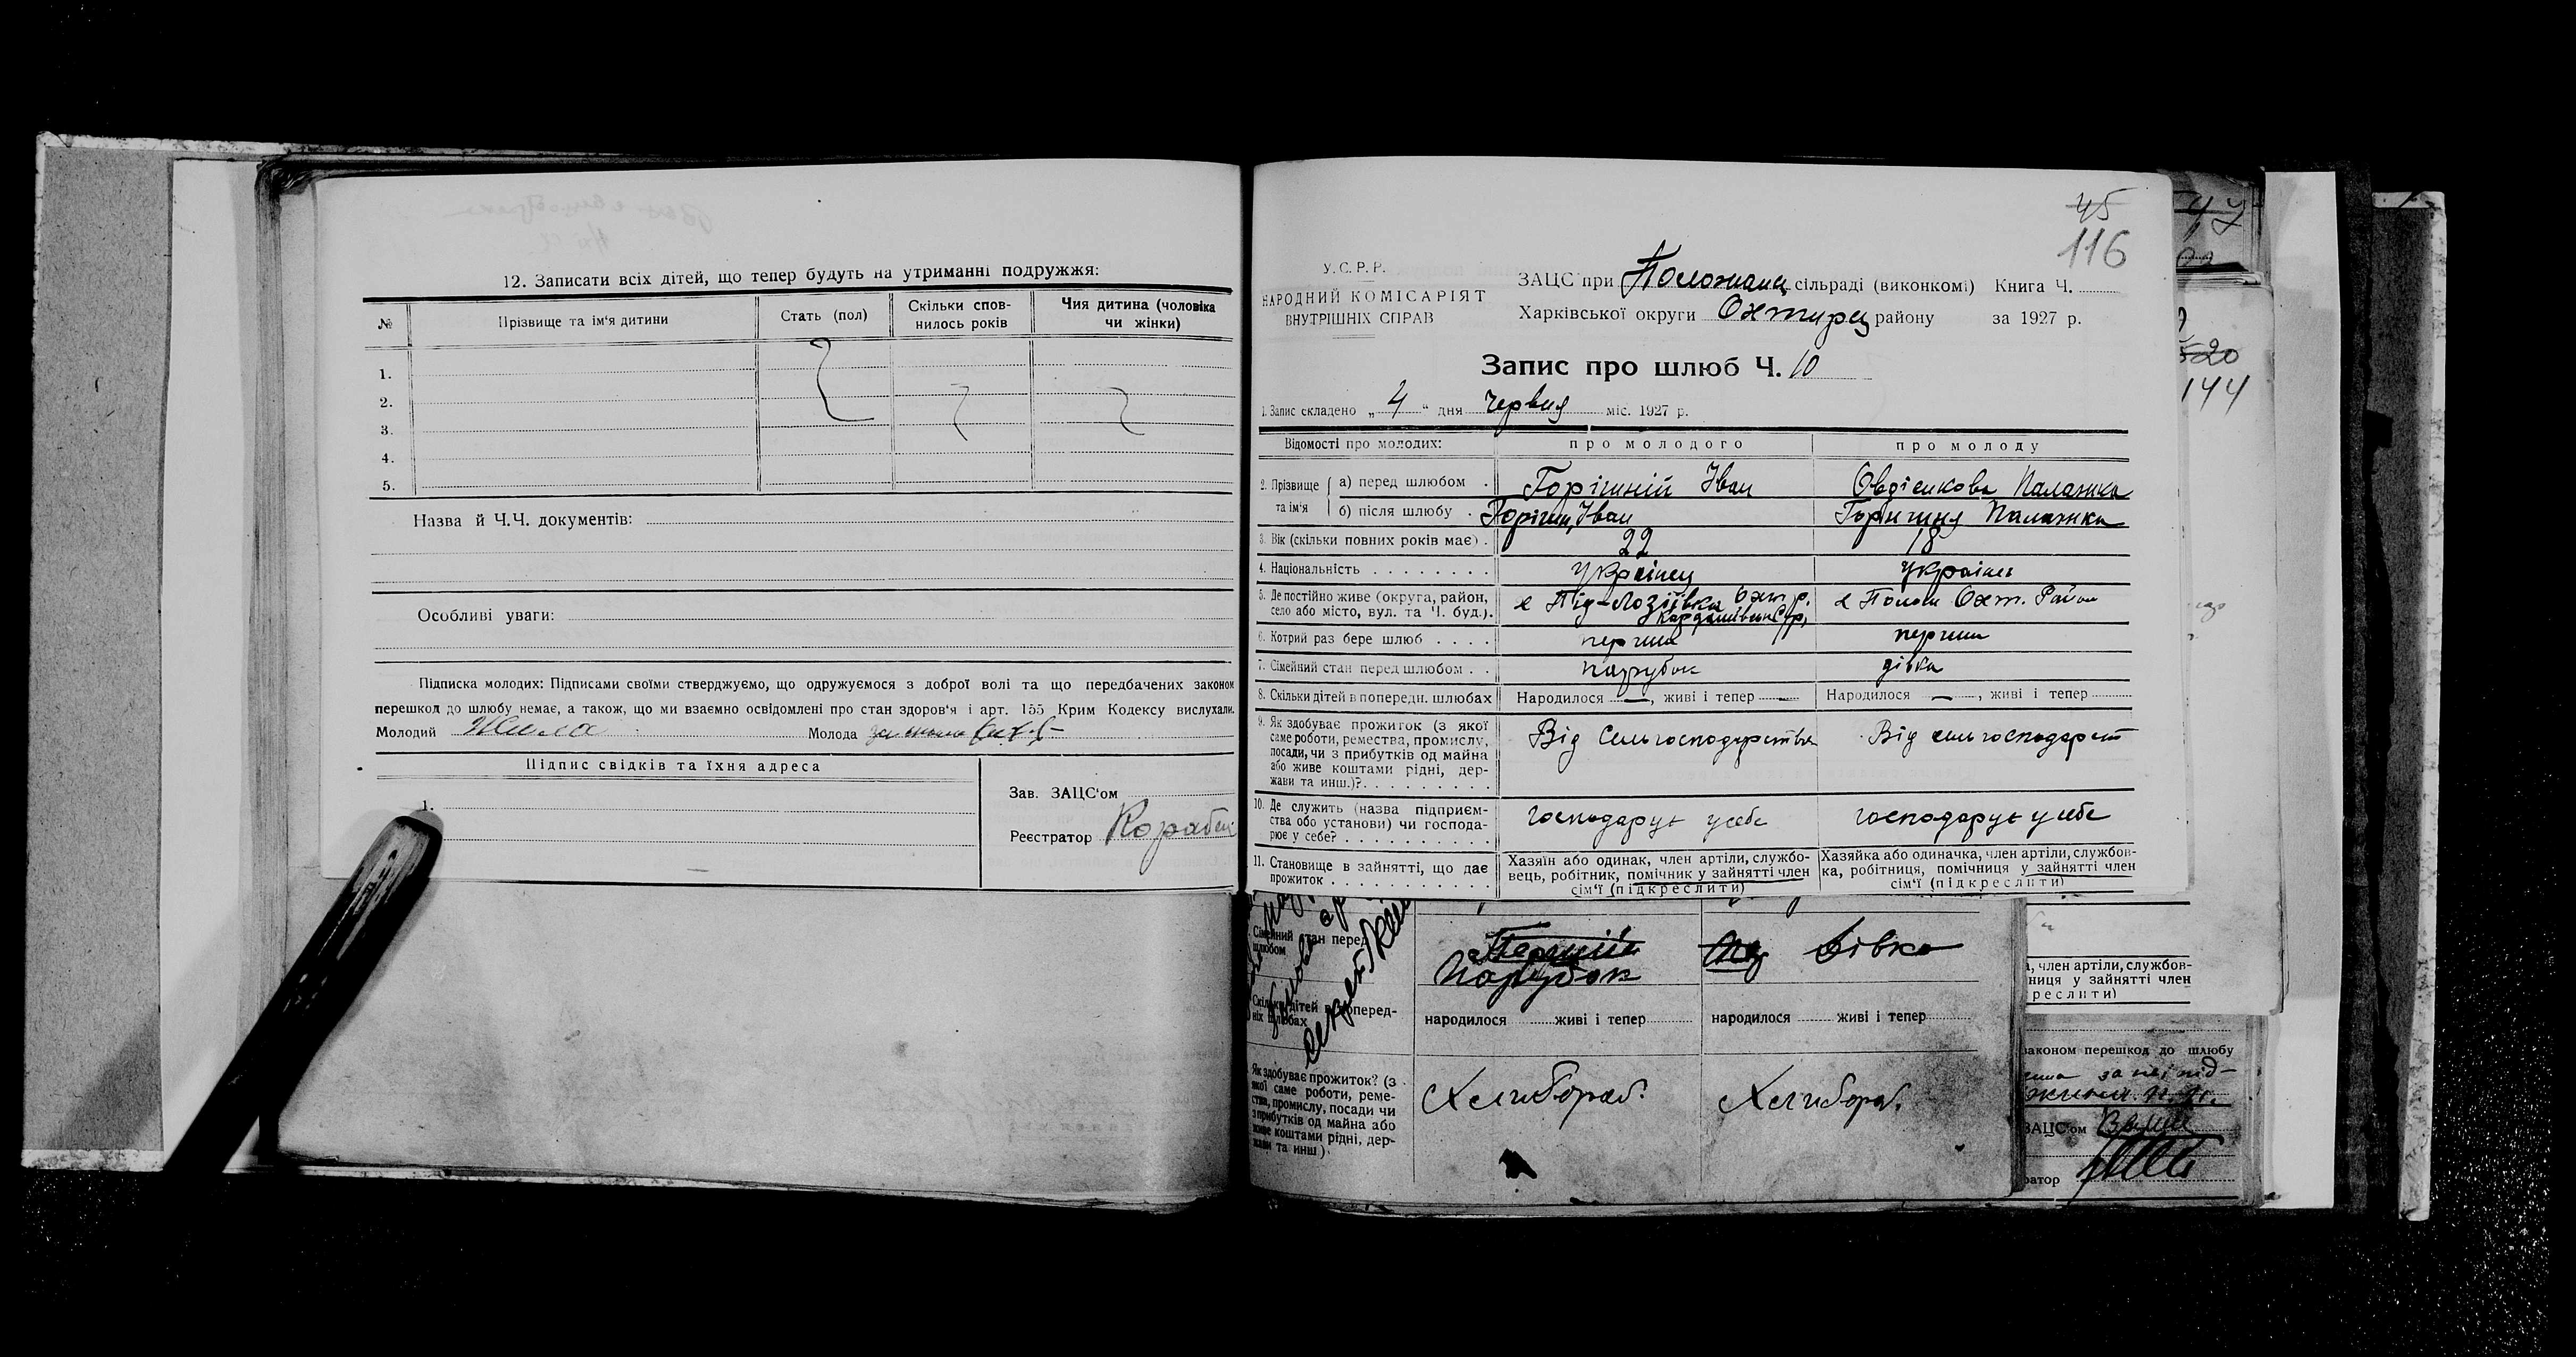 12. Записати всіх дітей, що тепер будуть на утриманні подружжя:
№ Прізвище та ім'я дитини Стать (пол) Скільки сповнилось років Чия дитина (чоловіка чи жінки)
1.
2.
3.
4.
5.
Назва й Ч.Ч. документів:
Особливі уваги:
Підписка молодих: Підписами своїми стверджуємо, що одружуємося з доброї волі та що передбачених законом
перешкод до шлюбу немає, а також, що ми взаємно освідомлені про стан здоров'я і арт. 155 Крим Кодексу вислухали.
Молодий Молода
Підпис свідків та їхня адреса
1.
Зав. ЗАЦС'ом
Реєстратор
45
116
У.С.Р.Р.
НАРОДНИЙ КОМІСАРІЯТ
ВНУТРІШНІХ СПРАВ
ЗАЦС при сільраді (виконкомі) Книга Ч.
Харківської округи Охтирец району за 1927 р.
Запис про шлюб Ч. 10
1. Запис складено „4" дня червня міс. 1927 р.
Відомості про молодих: про молодого про молоду
2. Прізвище та ім'я
а) перед шлюбом Горішній Іван Овдієнкова Палажка
б) після шлюбу Іван Палажка
3. Вік (скільки повних років має) 22 18
4. Національність Українец україн
5. Де постійно живе (округа, район,
село або місто, вул. та Ч. буд.) Охт. Район
6. Котрий раз бере шлюб перший перший
7. Сімейний стан перед шлюбом парубок дівка
8. Скільки дітей в попередн. шлюбах Народилося —, живі і тепер — Народилося —, живі і тепер
9. Як здобуває прожиток (з якої
саме роботи, ремества, промислу,
посади, чи з прибутків од майна
або живе коштами рідні, дер-
жави та инш.)?
Від Сельгосподарства Від сельгосподарст
10. Де служить (назва підприєм-
ства обо установи) чи господа-
рює у себе?
господарує у себе господарує у себе
11. Становище в зайнятті, що дає
прожиток
Хазяїн або одинак, член артіли, службо-
вець, робітник, помічник у зайнятті член
сім'ї (підкреслити)
Хазяйка або одиначка, член артіли, службов-
ка, робітниця, помічниця у зайнятті член
сім'ї (підкреслити)
Сімейний стан перед
шлюбом
Парубок Дівка
Скільки дітей в поперед-
ніх шлюбах
народилося живі і тепер народилося живі і тепер
Як здобуває прожиток? (з
якої саме роботи, реме-
ства, промислу, посади чи
з прибутків од майна або
живе коштами рідні, дер-
жави та инш)
Хлибораб. Хлибораб.
47
520
144
, член артіли, службов-
ниця у зайнятті член
реслити)
законом перешкод до шлюбу
ЗАЦС'ом
ратор